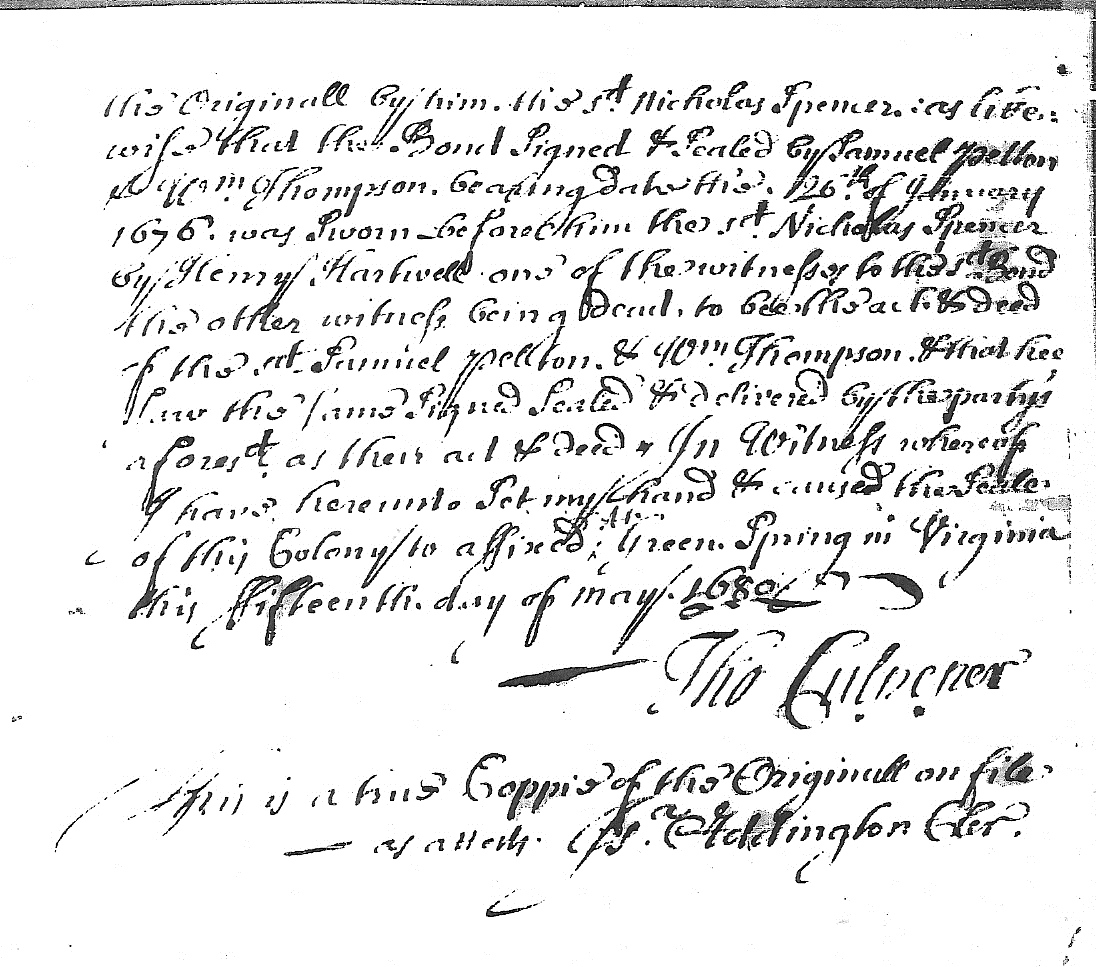 the Originall by him. the sd Nicholas Spencer. as like-
wise that the Bond Signed & Sealed by Samuel Pelton
& Wm Thompson. bearing date the. 26th of January
1676. was Sworn before him the sd. Nicholas Spencer
by Henry Hartwell one of the witnesses to the sd Bond
the other witness being dead. to bee the act & deed
of the sd. Samuel Pellton. & Wm Thompson. & that hee
Saw the same Signed Sealed & delivered by the partys
aforesd. as their act & deed In Witness whereof
I have hereunto Set my hand & caused the Seale
of this Colony to affixed; Att Green Spring in Virginia
this ffifteenth day of may. 1680
Tho Culpeper
This is a true Coppie of the Originall on file
as attests. Isr. Addington Cler.